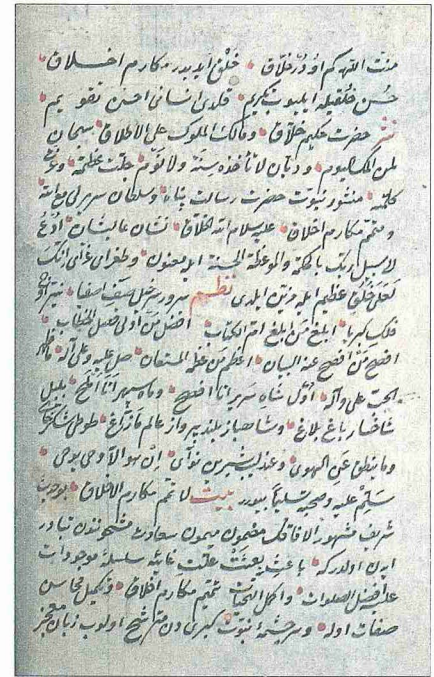 منت اللهه كم اودر خلاق خلق ايدىدر مكارم اخلاق
حسن خلقيله ايلييوب تكريم قلدى انسانى احسن تقويم
نثر حضرت حكيم خلاق ومالك الملوك على الاطلاق سبحان
لمن الملك اليوم وديان لا تأخذه سنة ولا نوم جلت عظمته وعمت
كلمته منشور نبوت حضرت رسالت پناه وسلطان سرير لى مع الله
ومتمم مكارم اخلاق عليه سلام الله الخلاق نشان عاليشان ادع
لا سبيل ربك بالحكمة والموعظة الحسنة ايله معنون وطغراى غراى انك
لعلى خلق عظيم ايله مزين ايلدى نظم سرور سرخيل صف اصفيا نير اوج
فلك كبريا ابلغ من ابلغ ام الكتاب افضل من اوتى فصل الخطاب
افصح من افصح عنه البيان اعظم من عظمه المستعان صل عليه وعلى آله ما ظهر
الحق على واله اول شاه سرير انا افصح وماه سپهر انا املح بلبل
شاخسار باغ بلاغ وشاهباز بلند پرواز عالم ما زاغ طوطى شكرخاى
وما ينطق عن الهوى وعندليب شيرين نواى ان هو الا وحى يوحى
سلم عليه وصحبه تسليما بيورر بيت لاتمم مكارم الاخلاق بو حديث
شريف مشهور الافاقك مضمون ميمون سعادت مشحونندن تبادر
ايدن اولدر كه باعث بعثت علت غائيه سلسله موجودات
عليه افضل الصلوات واكمل التحيات تتميم مكارم اخلاق وتكميل محاسن
صفات اوله وسرچشمه نبوت كبرى دن مترشح اولوب زبان معجز